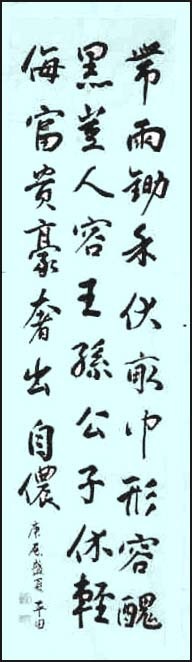 帶雨鋤禾伏畝中形容醜
黑豈人容王孫公子休輕
侮富貴豪奢出自儂
庚辰盛夏 平田